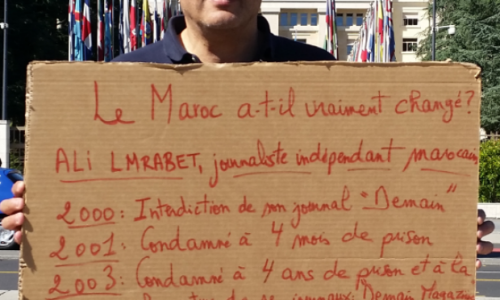 Le Maroc a-t-il vraiment changé?
ALI LMRABET, journaliste indépendant marocain
2000: Interdiction de mon journal "Demain"
2001: Condamné à 4 mois de prison
2003: Condamné à 4 ans de prison et à la
journaux: Demain Magazine